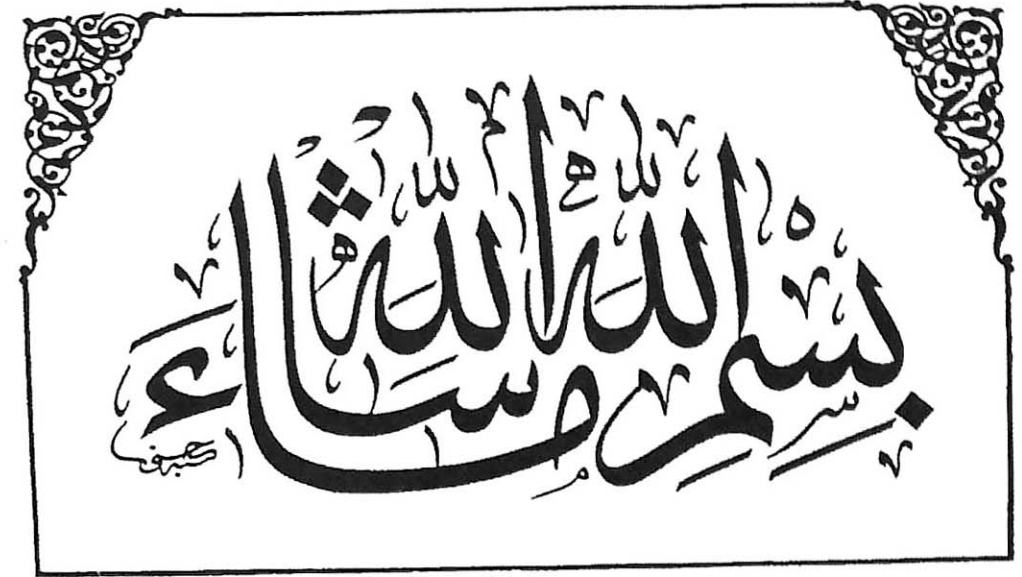 بِسْمِ اللهِ مَا شَاءَ اللهُ